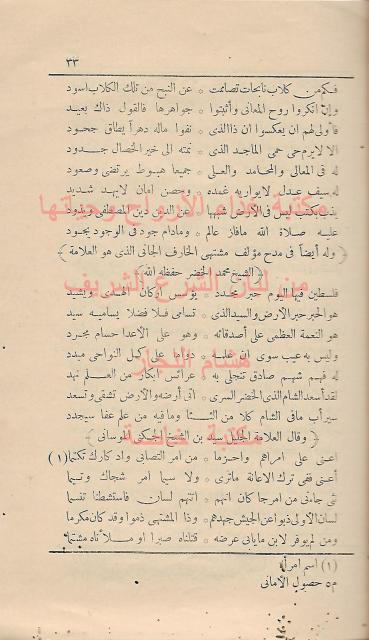 ٣٣
فكم من كلاب نابحات تصاممت * عن النبح من تلك الكلاب اسود
وإن انكروا روح المعانى وأثبتوا * جواهرها فالقول ذاك بعيد
فأولى لهم ان يعكسوا ان ذا الذى * نفوا ماله دهراً يطاق جحود
الا لا يرم حى حمى الماجد الذى * نمته الى خير الخصال جدود
له فى المعالى والمحامد والعلى * جميعا هبوط يرتضى وصعود
له سيف عدل لا يواريه غمده * وحصن امان لا يهد شديد
ليس فى الأرض شبهها * عن الدين دين المصطفى ويذود
عليه صلاة الله ما فاز عالم * وما دام جود فى الوجود يجود
﴿ وله أيضاً فى مدح مؤلف مشتهى الخارف الجانى الذى هو العلامة ﴾
﴿ الشيخ محمد الخضر حفظه الله ﴾
فلسطين فيها اليوم حبر مجدد * يؤسس اركان الهدى ويشيد
هو الحبر حبر الأرض والسيد الذى * تسامى فلا فضلا يساميه سيد
هو النعمة العظمى على أصدقائه * وهو على الاعدا حسام مجرد
وليس به عيب سوى ان * دواما على كل النواحى مبدد
له فهم شهم صادق تنجلى به * عرائس ابكار من العلم نهد
لقد أسعد الشام الذى الخضر السرى * اتى أرضه والأرض تشقى وتسعد
سيرأب مافى الشام كلا من الثأى * وما فيه من علم عفا سيجدد
﴿ وقال العلامة الجليل سيد بن الشيخ ﴾
اعنى على امراهم واحزما * من امر التصابى وادكارك تكتما (١)
أعنى ففى ترك الاعانة ماترى * ولا سيما امر شجاك وتيما
جاءنى من امر جاكان انهم * لسان فاستشطنا
لسان الأولى ذبوا عن الجيش جهدهم * وذا المشتهى ذموا وقد كان مكرما
ومن لم يوفر لابن مايابى عرضه * قتلناه صبرا او ملأناه مشتما
(١) اسم امرأة
م٥ حصول الامانى
مكتبة غذاء الأرواح وحياتها
من لبان الشرع الشريف
هشام النجار
مكتبة خاصة